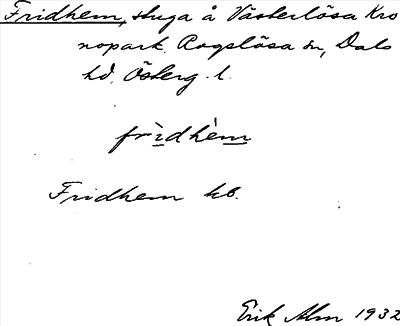 Fridhem, stuga å Västerlösa Kro
nopark. Rogslösa sn, Dals
hd. Österg. l.
frìdhèm
Fridhem kb.
Erik Alm 1932